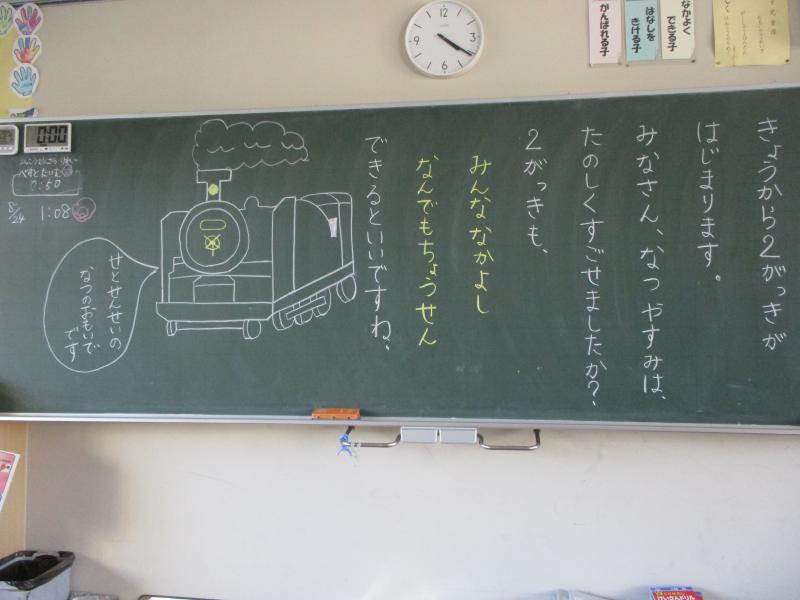 きょうから2がっきが
はじまります。
みなさん、なつやすみは、
たのしくすごせましたか？、
2がっきも、
みんななかよし
なんでもちょうせん
できるといいですね、
せとせんせいの
なつのおもいで
です
べすとたいむ
0:50
8/24
1:08
0:00
12
3
6
9
なかよく
できる子
はなしを
きける子
がんばれる子
けいさんドリル